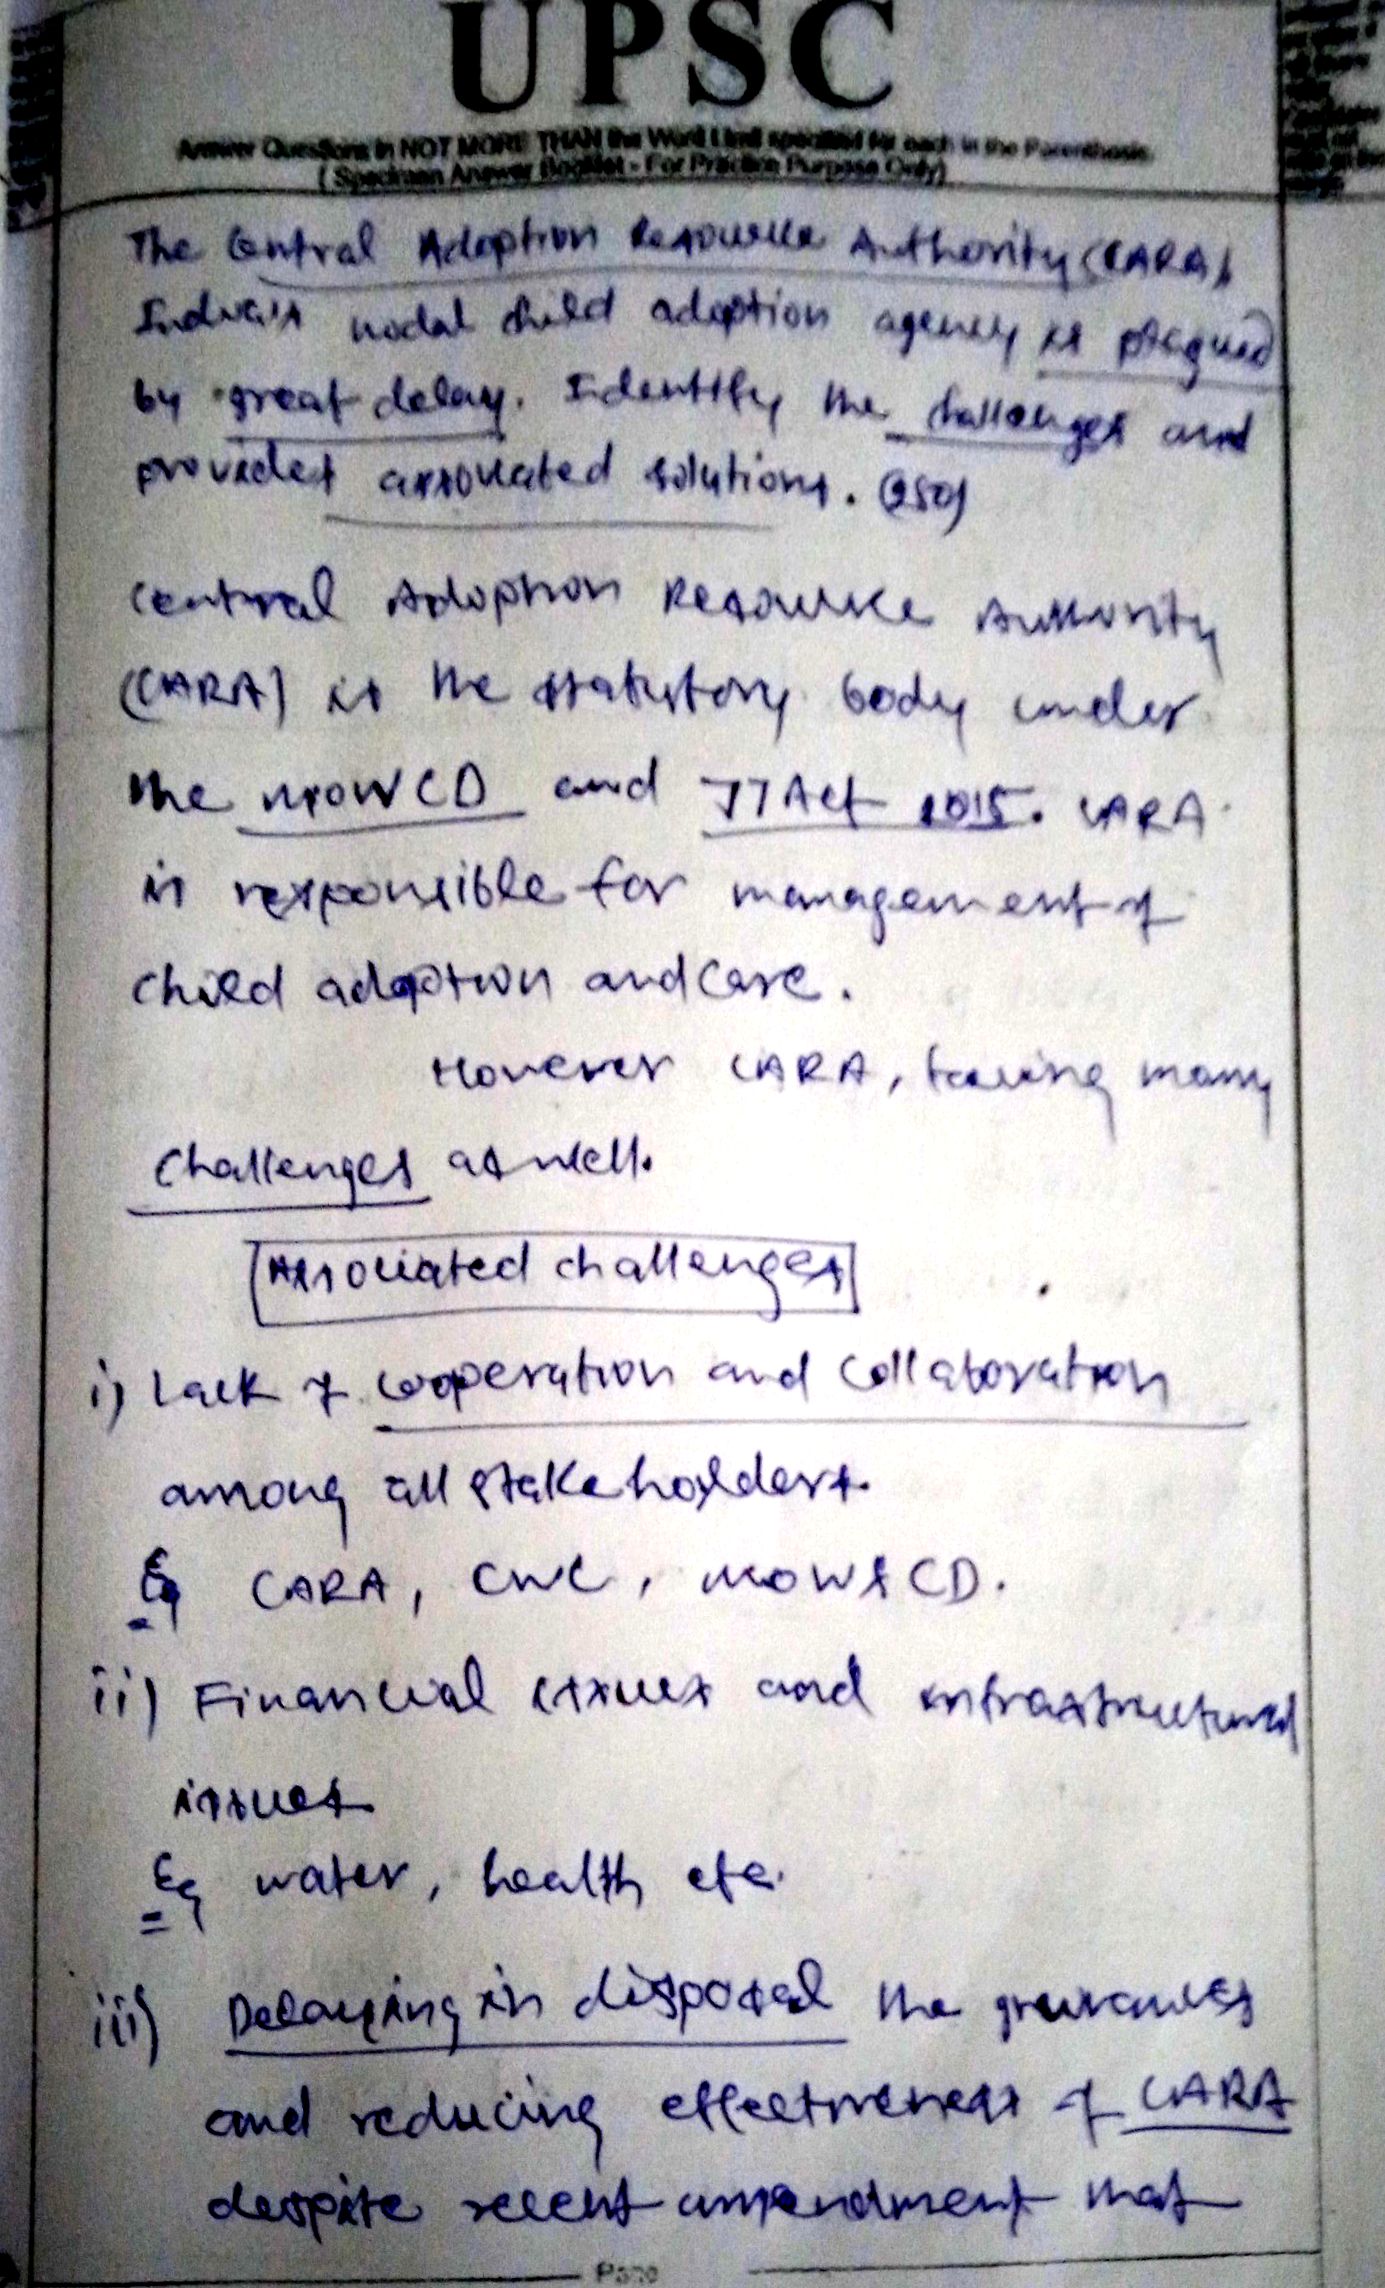 UPSC
Answer Questions in NOT MORE THAN the Word Limit specified for each in the Parenthesis.
( Specimen Answer Booklet - For Practice Purpose Only)
The Central Adoption Resource Authority (CARA),
India's nodal child adoption agency is plagued
by great delay. Identify the challenges and
provides associated solutions. (250)
Central Adoption Resource Authority
(CARA) is the statutory body under
the MOWCD and JJ Act 2015. CARA
is responsible for management of
child adoption and care.
However CARA, facing many
challenges as well.
Associated challenges
i) Lack of cooperation and collaboration
among all stakeholders.
Eg CARA, CWC, MOW&CD.
ii) Financial issues and infrastructural
issues
Eg water, health etc.
iii) Delaying in disposal the grievances
and reducing effectiveness of CARA
despite recent amendment that
Page